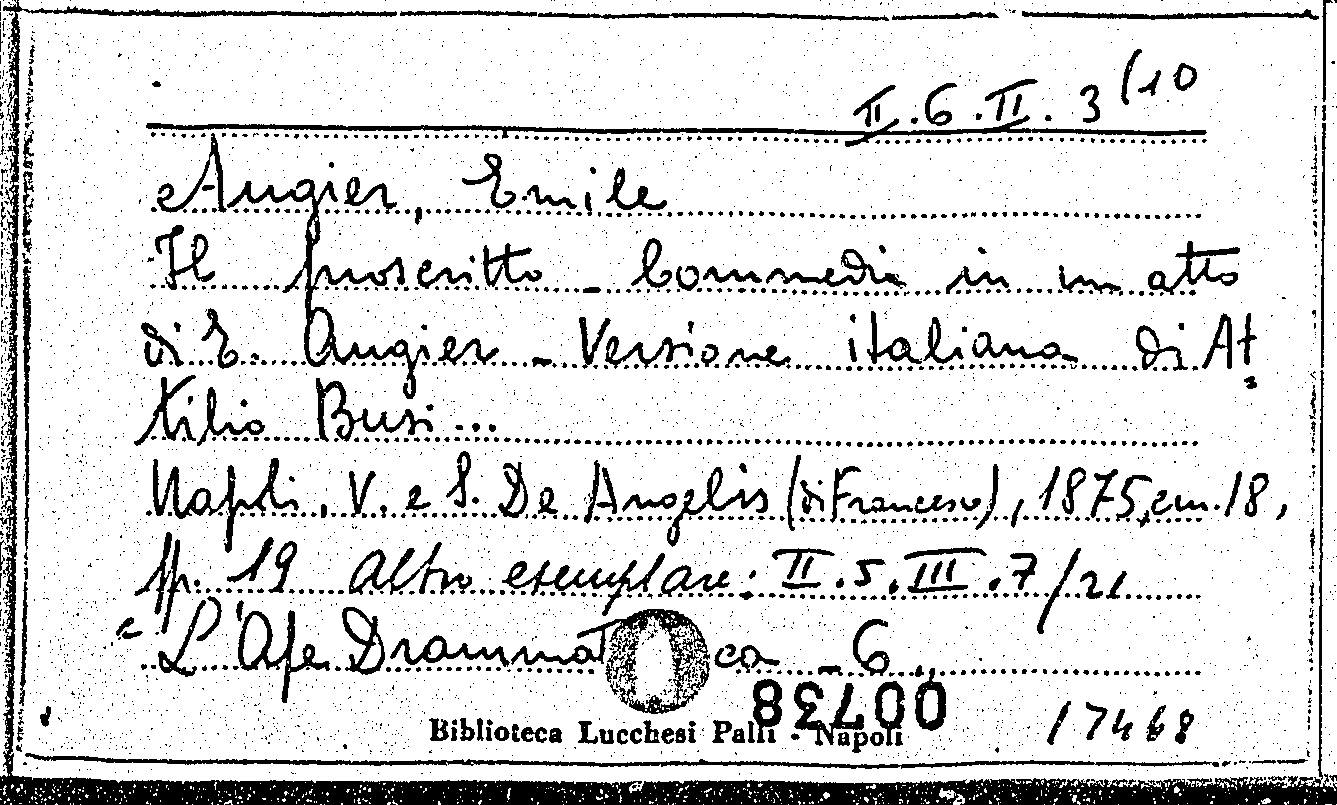 II.6.II.3(10
Augier, Emile
Il proscritto - Commedia in un atto
di E. Augier - Versione italiana di At=
tilio Busi...
Napoli, V. e S. De Angelis (di Francesco), 1875, cm. 18,
pp. 19 Altro esemplare: II.5.III.7/21
"L'Ape Drammat ca - 6"
00738
Biblioteca Lucchesi Palli - Napoli
17468